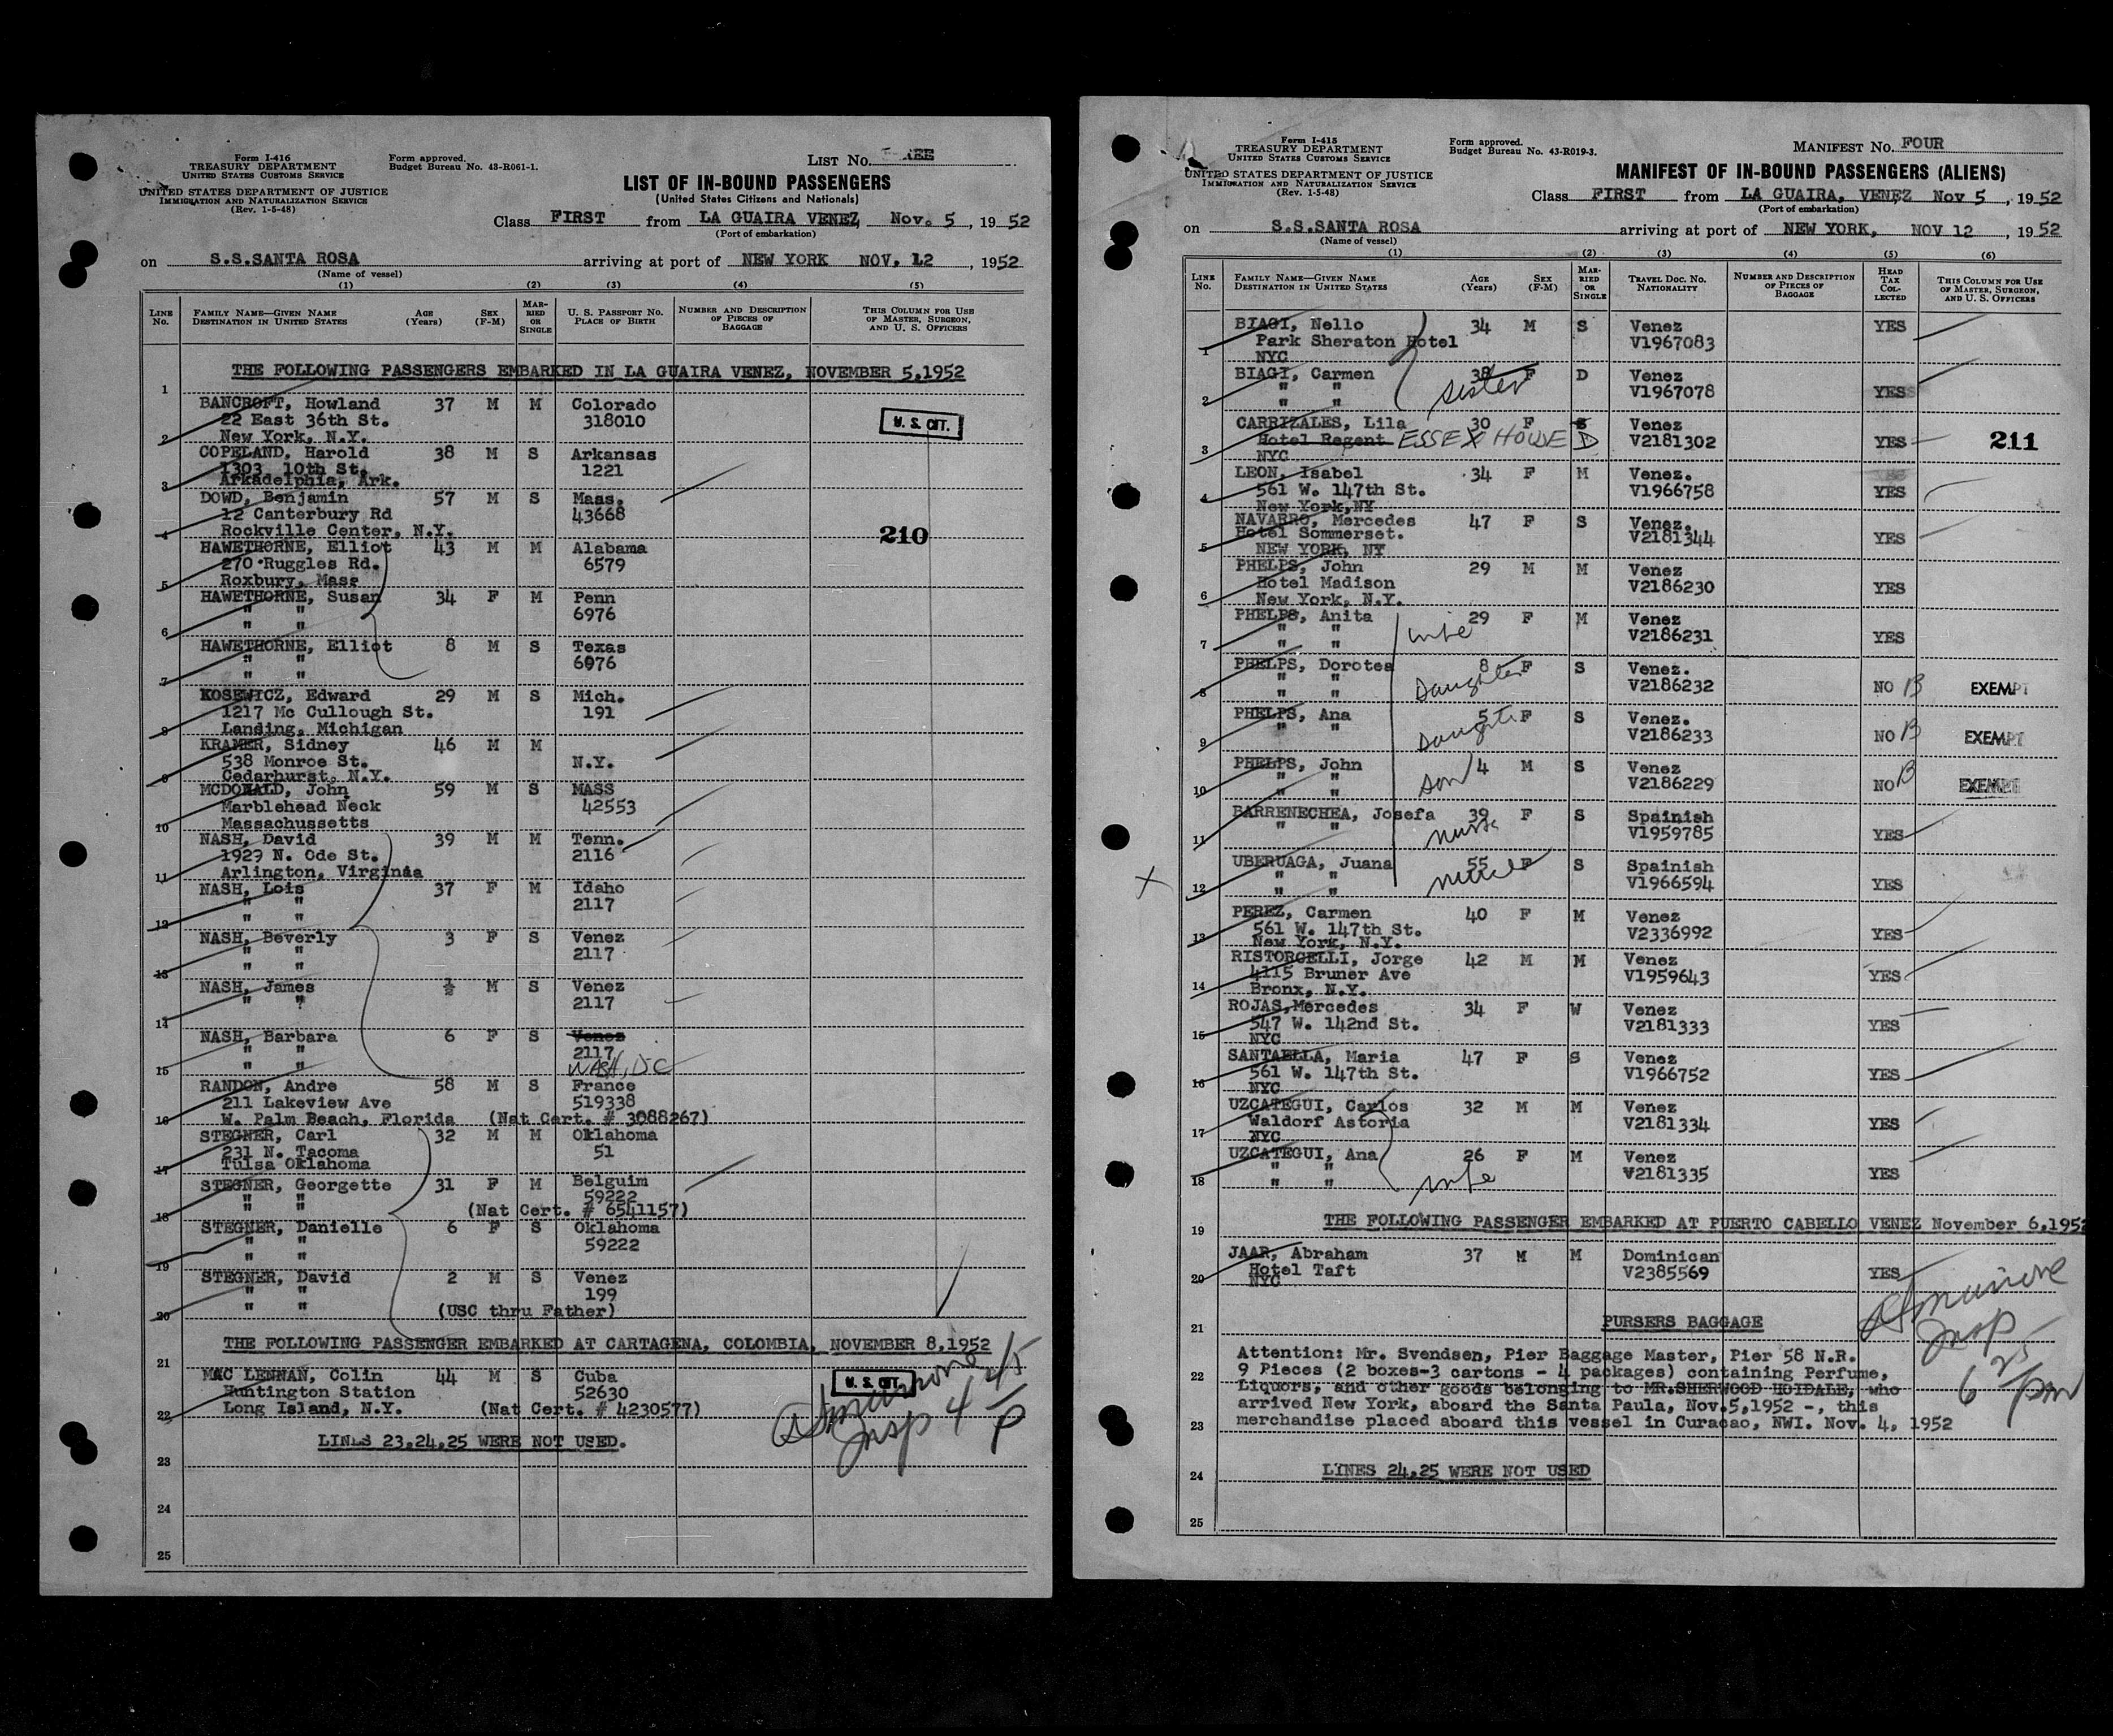 Form I-416
TREASURY DEPARTMENT
UNITED STATES CUSTOMS SERVICE
UNITED STATES DEPARTMENT OF JUSTICE
IMMIGRATION AND NATURALIZATION SERVICE
(Rev. 1-5-48)
Form approved.
Budget Bureau No. 43-R061-1.
LIST No. REE
LIST OF IN-BOUND PASSENGERS
(United States Citizens and Nationals)
Class FIRST from LA GUAIRA VENEZ, Nov. 5, 1952
(Port of embarkation)
on S.S.SANTA ROSA arriving at port of NEW YORK NOV. 12, 1952
(Name of vessel)
(1) (2) (3) (4) (5)
LINE No. FAMILY NAME—GIVEN NAME DESTINATION IN UNITED STATES AGE (Years) SEX (F-M) MARRIED OR SINGLE U. S. PASSPORT NO. PLACE OF BIRTH NUMBER AND DESCRIPTION OF PIECES OF BAGGAGE THIS COLUMN FOR USE OF MASTER, SURGEON, AND U. S. OFFICERS
THE FOLLOWING PASSENGERS EMBARKED IN LA GUAIRA VENEZ, NOVEMBER 5,1952
1
BANCROFT, Howland 37 M M Colorado
22 East 36th St. 318010 U. S. CIT.
2 New York, N.Y.
COPELAND, Harold 38 M S Arkansas
1303 10th St. 1221
3 Arkadelphia, Ark.
DOWD, Benjamin 57 M S Mass.
12 Canterbury Rd 43668
4 Rockville Center, N.Y. 210
HAWETHORNE, Elliot 43 M M Alabama
270 Ruggles Rd. 6579
5 Roxbury, Mass
HAWETHORNE, Susan 34 F M Penn
" " 6976
6 " "
HAWETHORNE, Elliot 8 M S Texas
" " 6976
7 " "
KOSEWICZ, Edward 29 M S Mich.
1217 Mc Cullough St. 191
8 Landing, Michigan
KRAMER, Sidney 46 M M
538 Monroe St. N.Y.
9 Cedarhurst, N.Y.
MCDONALD, John 59 M S MASS
Marblehead Neck 42553
10 Massachussetts
NASH, David 39 M M Tenn.
1929 N. Ode St. 2116
11 Arlington, Virginia
NASH, Lois 37 F M Idaho
" " 2117
12 " "
NASH, Beverly 3 F S Venez
" " 2117
13 " "
NASH, James ½ M S Venez
" " 2117
14
NASH, Barbara 6 F S Venez
" " 2117
15 " " WASH, DC
RANDON, Andre 58 M S France
211 Lakeview Ave 519338
16 W. Palm Beach, Florida (Nat Cert. # 3088267)
STEGNER, Carl 32 M M Oklahoma
231 N. Tacoma 51
17 Tulsa Oklahoma
STEGNER, Georgette 31 F M Belguim
" " 59222
18 " " (Nat Cert. # 6541157)
STEGNER, Danielle 6 F S Oklahoma
" " 59222
19 " "
STEGNER, David 2 M S Venez
" " 199
20 " " (USC thru Father)
THE FOLLOWING PASSENGER EMBARKED AT CARTAGENA, COLOMBIA, NOVEMBER 8,1952
21
MAC LENNAN, Colin 44 M S Cuba U. S. CIT.
Huntington Station 52630
22 Long Island, N.Y. (Nat Cert. # 4230577) Insp
LINES 23,24,25 WERE NOT USED.
23
24
25
Form I-415
TREASURY DEPARTMENT
UNITED STATES CUSTOMS SERVICE
UNITED STATES DEPARTMENT OF JUSTICE
IMMIGRATION AND NATURALIZATION SERVICE
(Rev. 1-5-48)
Form approved.
Budget Bureau No. 43-R019-3.
MANIFEST No. FOUR
MANIFEST OF IN-BOUND PASSENGERS (ALIENS)
Class FIRST from LA GUAIRA, VENEZ Nov 5, 1952
(Port of embarkation)
on S.S.SANTA ROSA arriving at port of NEW YORK, NOV 12, 1952
(Name of vessel)
(1) (2) (3) (4) (5) (6)
LINE No. FAMILY NAME—GIVEN NAME DESTINATION IN UNITED STATES AGE (Years) SEX (F-M) MARRIED OR SINGLE TRAVEL DOC. NO. NATIONALITY NUMBER AND DESCRIPTION OF PIECES OF BAGGAGE HEAD TAX COLLECTED THIS COLUMN FOR USE OF MASTER, SURGEON, AND U. S. OFFICERS
BIAGI, Nello 34 M S Venez YES
Park Sheraton Hotel V1967083
1 NYC
BIAGI, Carmen 38 F D Venez
" " sister V1967078 YES
2 " "
CARRIZALES, Lila 30 F S Venez
Hotel Regent ESSEX HOUSE D V2181302 YES 211
3 NYC
LEON, Isabel 34 F M Venez.
4 561 W. 147th St. V1966758 YES
New York,NY
NAVARRO, Mercedes 47 F S Venez.
Hotel Sommerset. V2181344 YES
5 NEW YORK, NY
PHELPS, John 29 M M Venez
Hotel Madison V2186230 YES
6 New York, N.Y.
PHELPS, Anita 29 F M Venez
" " wife V2186231 YES
7 " "
PHELPS, Dorotea 8 F S Venez.
" " Daughter V2186232 NO B EXEMPT
8 " "
PHELPS, Ana 5 F S Venez.
" " Daughter V2186233 NO B EXEMPT
9
PHELPS, John 4 M S Venez
" " son V2186229 NO B EXEMPT
10 " "
BARRENECHEA, Josefa 39 F S Spainish
" " nurse V1959785 YES
11
UBERUAGA, Juana 55 F S Spainish
" " nurse V1966594 YES
12 " "
PEREZ, Carmen 40 F M Venez
561 W. 147th St. V2336992 YES
13 New York, N.Y.
RISTORCELLI, Jorge 42 M M Venez
4115 Bruner Ave V1959643 YES
14 Bronx, N.Y.
ROJAS,Mercedes 34 F W Venez
547 W. 142nd St. V2181333 YES
15 NYC
SANTAELLA, Maria 47 F S Venez
561 W. 147th St. V1966752 YES
16 NYC
UZCATEGUI, Carlos 32 M M Venez
Waldorf Astoria V2181334 YES
17 NYC
UZCATEGUI, Ana 26 F M Venez
" " V2181335 YES
18 " " wife
THE FOLLOWING PASSENGER EMBARKED AT PUERTO CABELLO VENEZ November 6,1952
19
JAAR, Abraham 37 M M Dominican
Hotel Taft V2385569 YES
20 NYC
PURSERS BAGGAGE
21 Insp
Attention: Mr. Svendsen, Pier Baggage Master, Pier 58 N.R.
22 9 Pieces (2 boxes-3 cartons - 4 packages) containing Perfume,
Liquors, and other goods belonging to MR.SHERWOOD HOIDALE, who
arrived New York, aboard the Santa Paula, Nov.5,1952 -, this
23 merchandise placed aboard this vessel in Curacao, NWI. Nov. 4, 1952
6 25 pm
LINES 24,25 WERE NOT USED
24
25